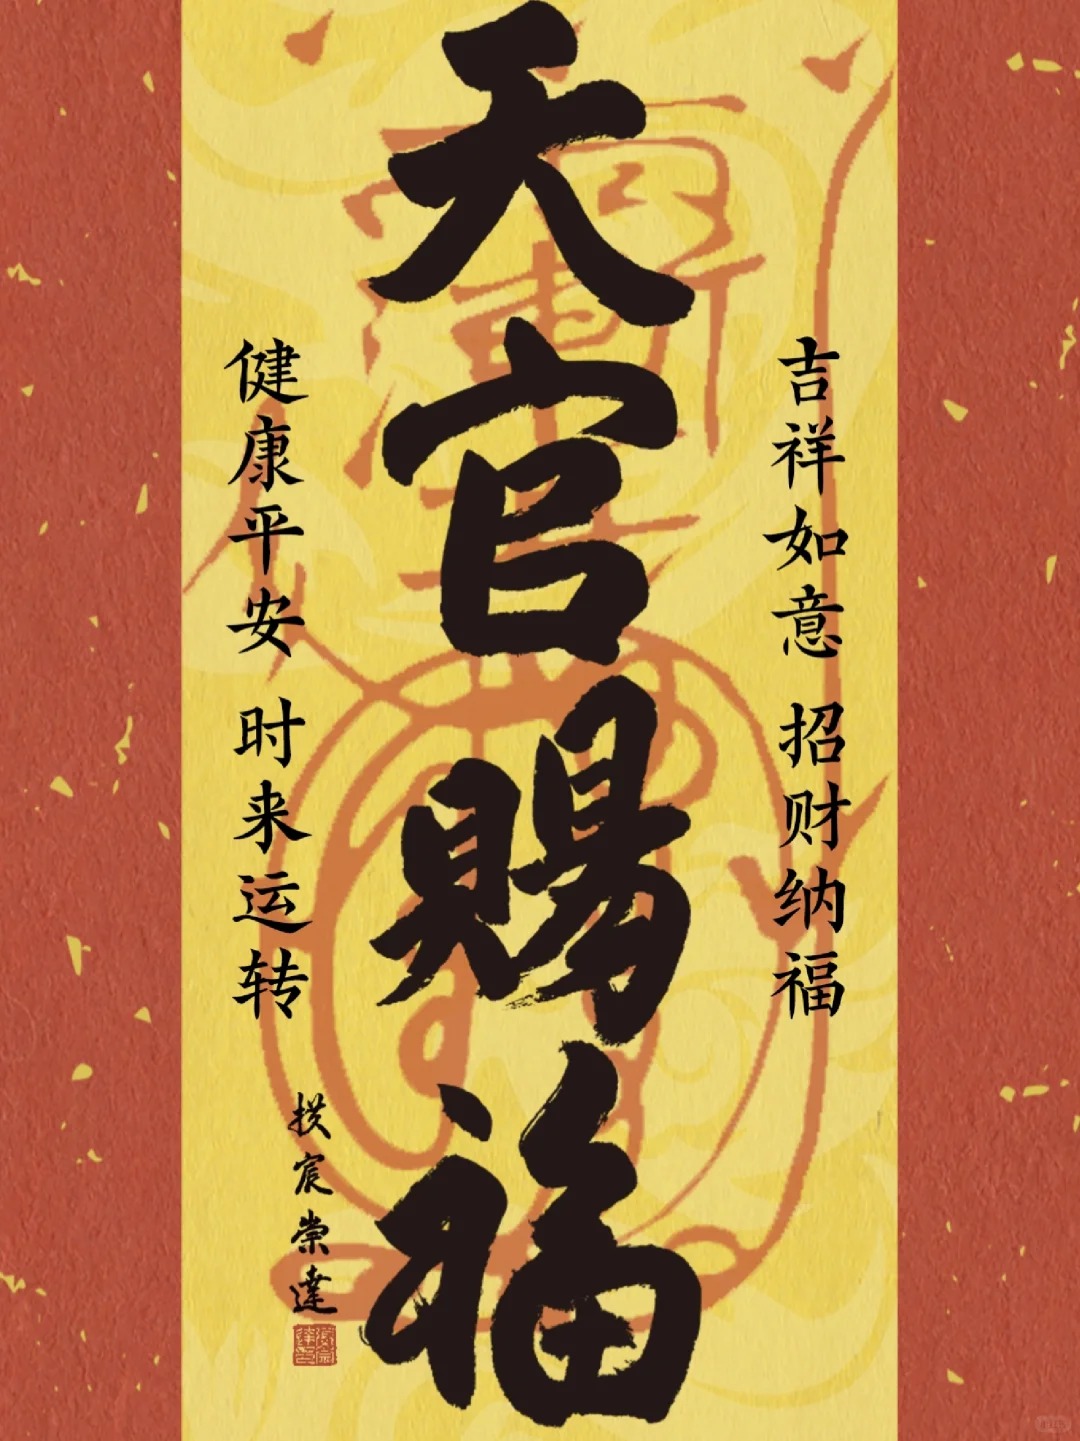 天官赐福
吉祥如意 招财纳福
健康平安 时来运转
宸崇達